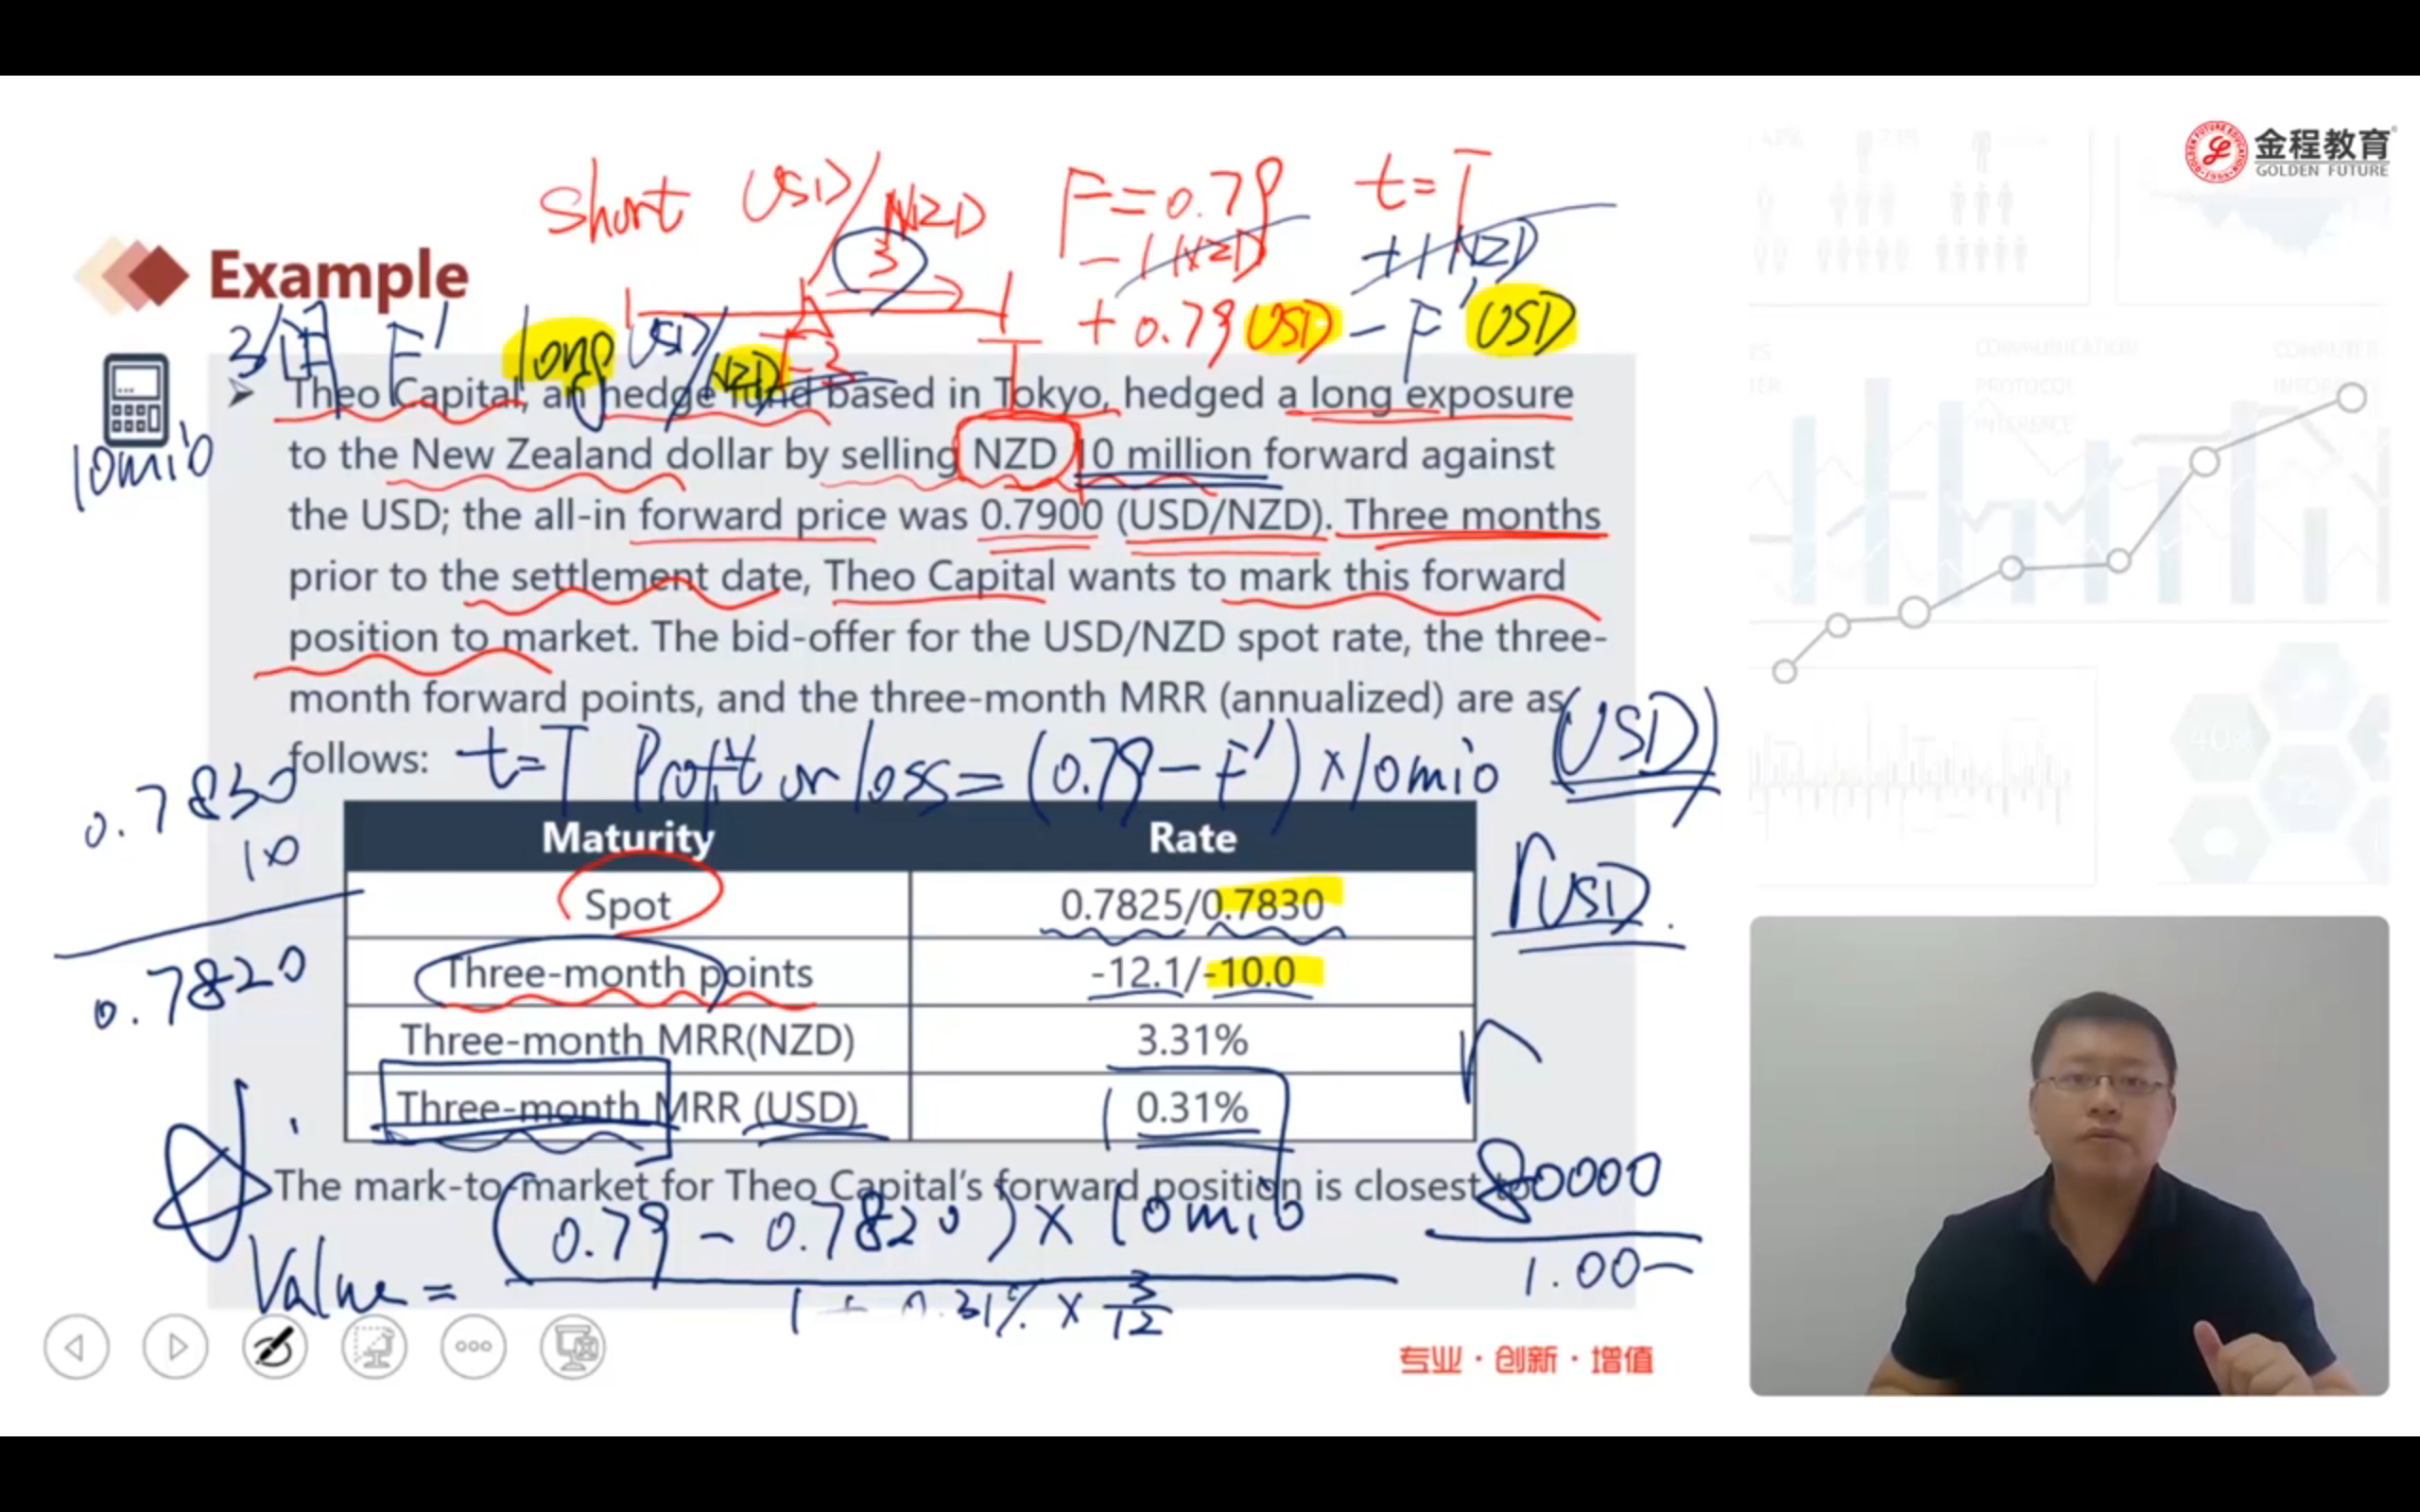 金程教育
GOLDEN FUTURE
Short USD/NZD F=0.79 t=T
3 -1 NZD +1 NZD
+0.79 USD - F' USD
Example
3月 F' long USD/NZD
T-3 T
Theo Capital, an hedge fund based in Tokyo, hedged a long exposure
10mio
to the New Zealand dollar by selling NZD 10 million forward against
the USD; the all-in forward price was 0.7900 (USD/NZD). Three months
prior to the settlement date, Theo Capital wants to mark this forward
position to market. The bid-offer for the USD/NZD spot rate, the three-
month forward points, and the three-month MRR (annualized) are as
follows:
t=T Profit or loss=(0.79-F')×10mio (USD)
0.7830
10
0.7820
Maturity Rate
Spot 0.7825/0.7830
rUSD.
Three-month points -12.1/-10.0
Three-month MRR(NZD) 3.31%
Three-month MRR (USD) 0.31%
The mark-to-market for Theo Capital's forward position is closest to
80000
1.00
Value = (0.79 - 0.7820) × 10mio
1 + 0.31% × 3/12
专业·创新·增值